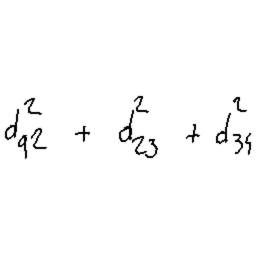 d_{92}^2 + d_{23}^2 + d_{34}^2